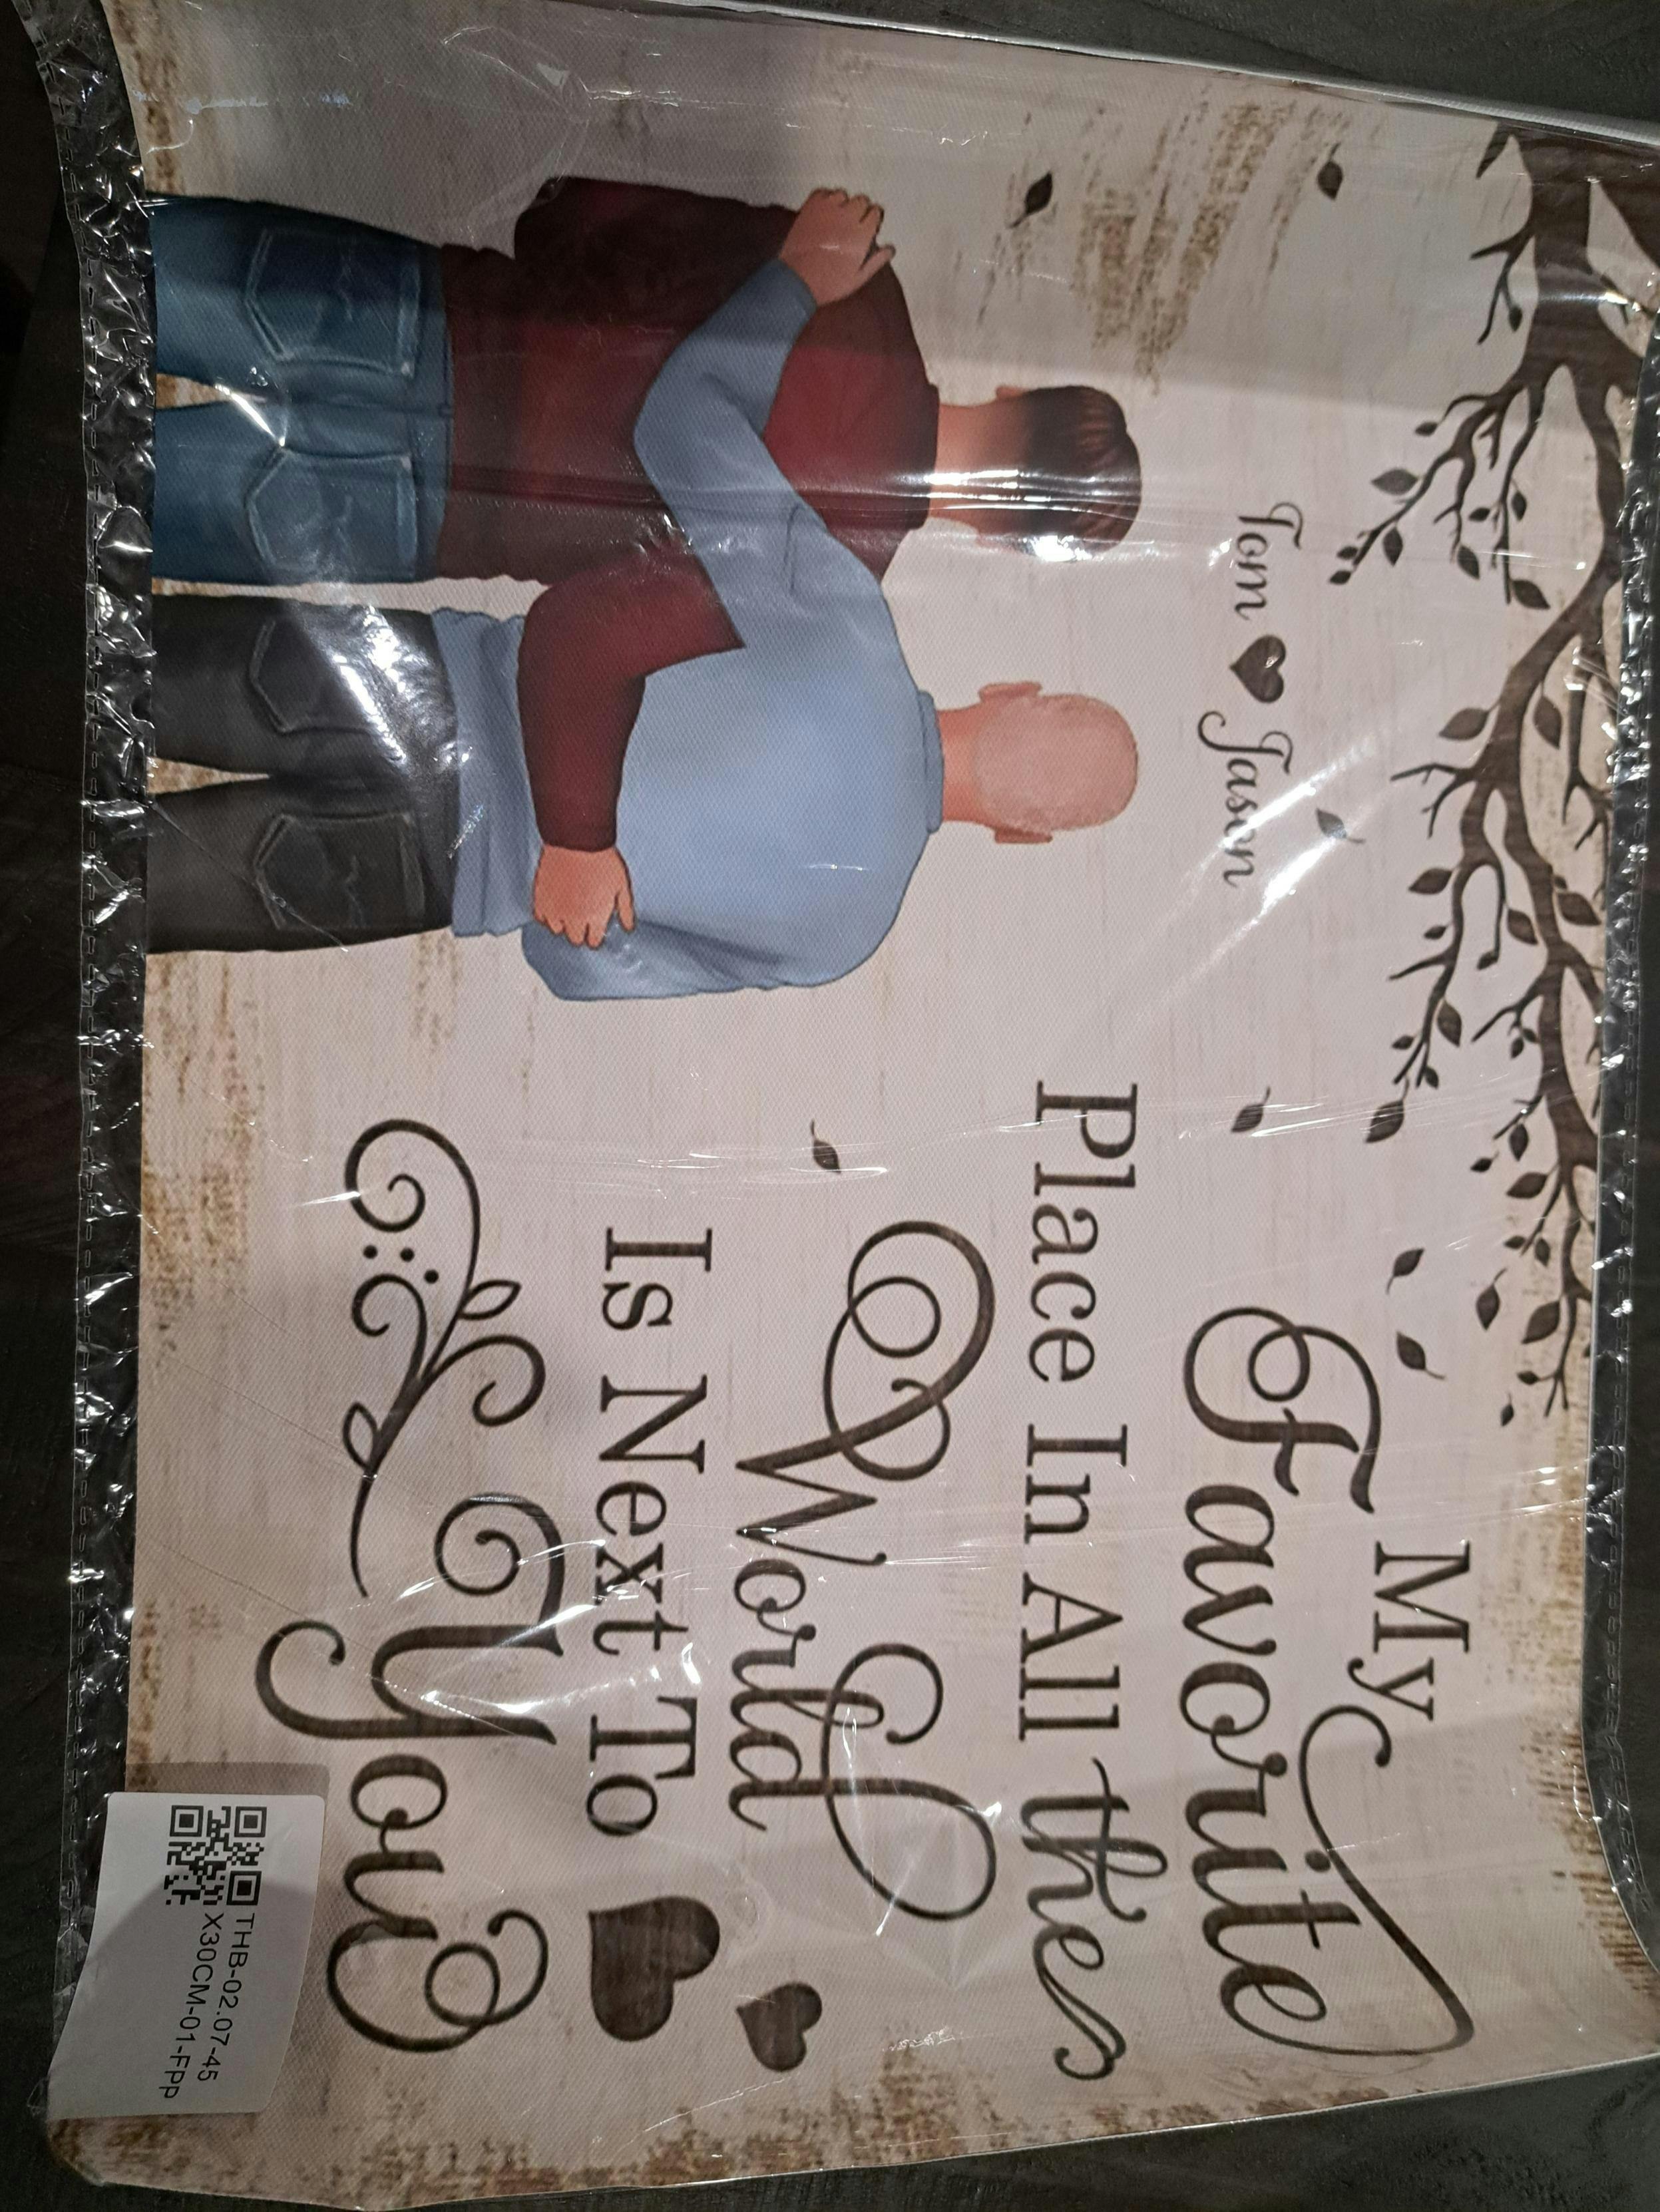 Tom Jason
My
Favorite
Place In All the
World
Is Next To
You
THB-02.07-45
X30CM-01-FPp